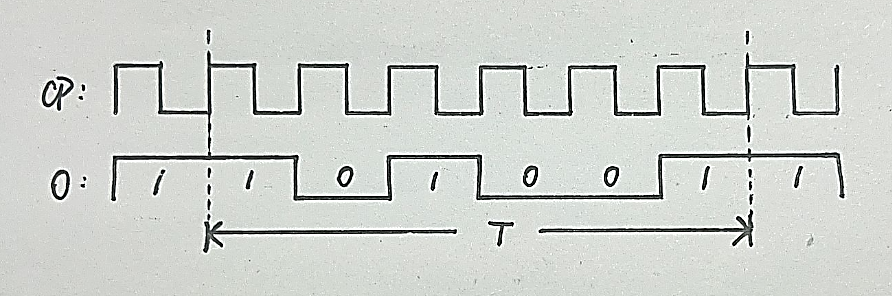 CP:
O: 1 1 0 1 0 0 1 1
T